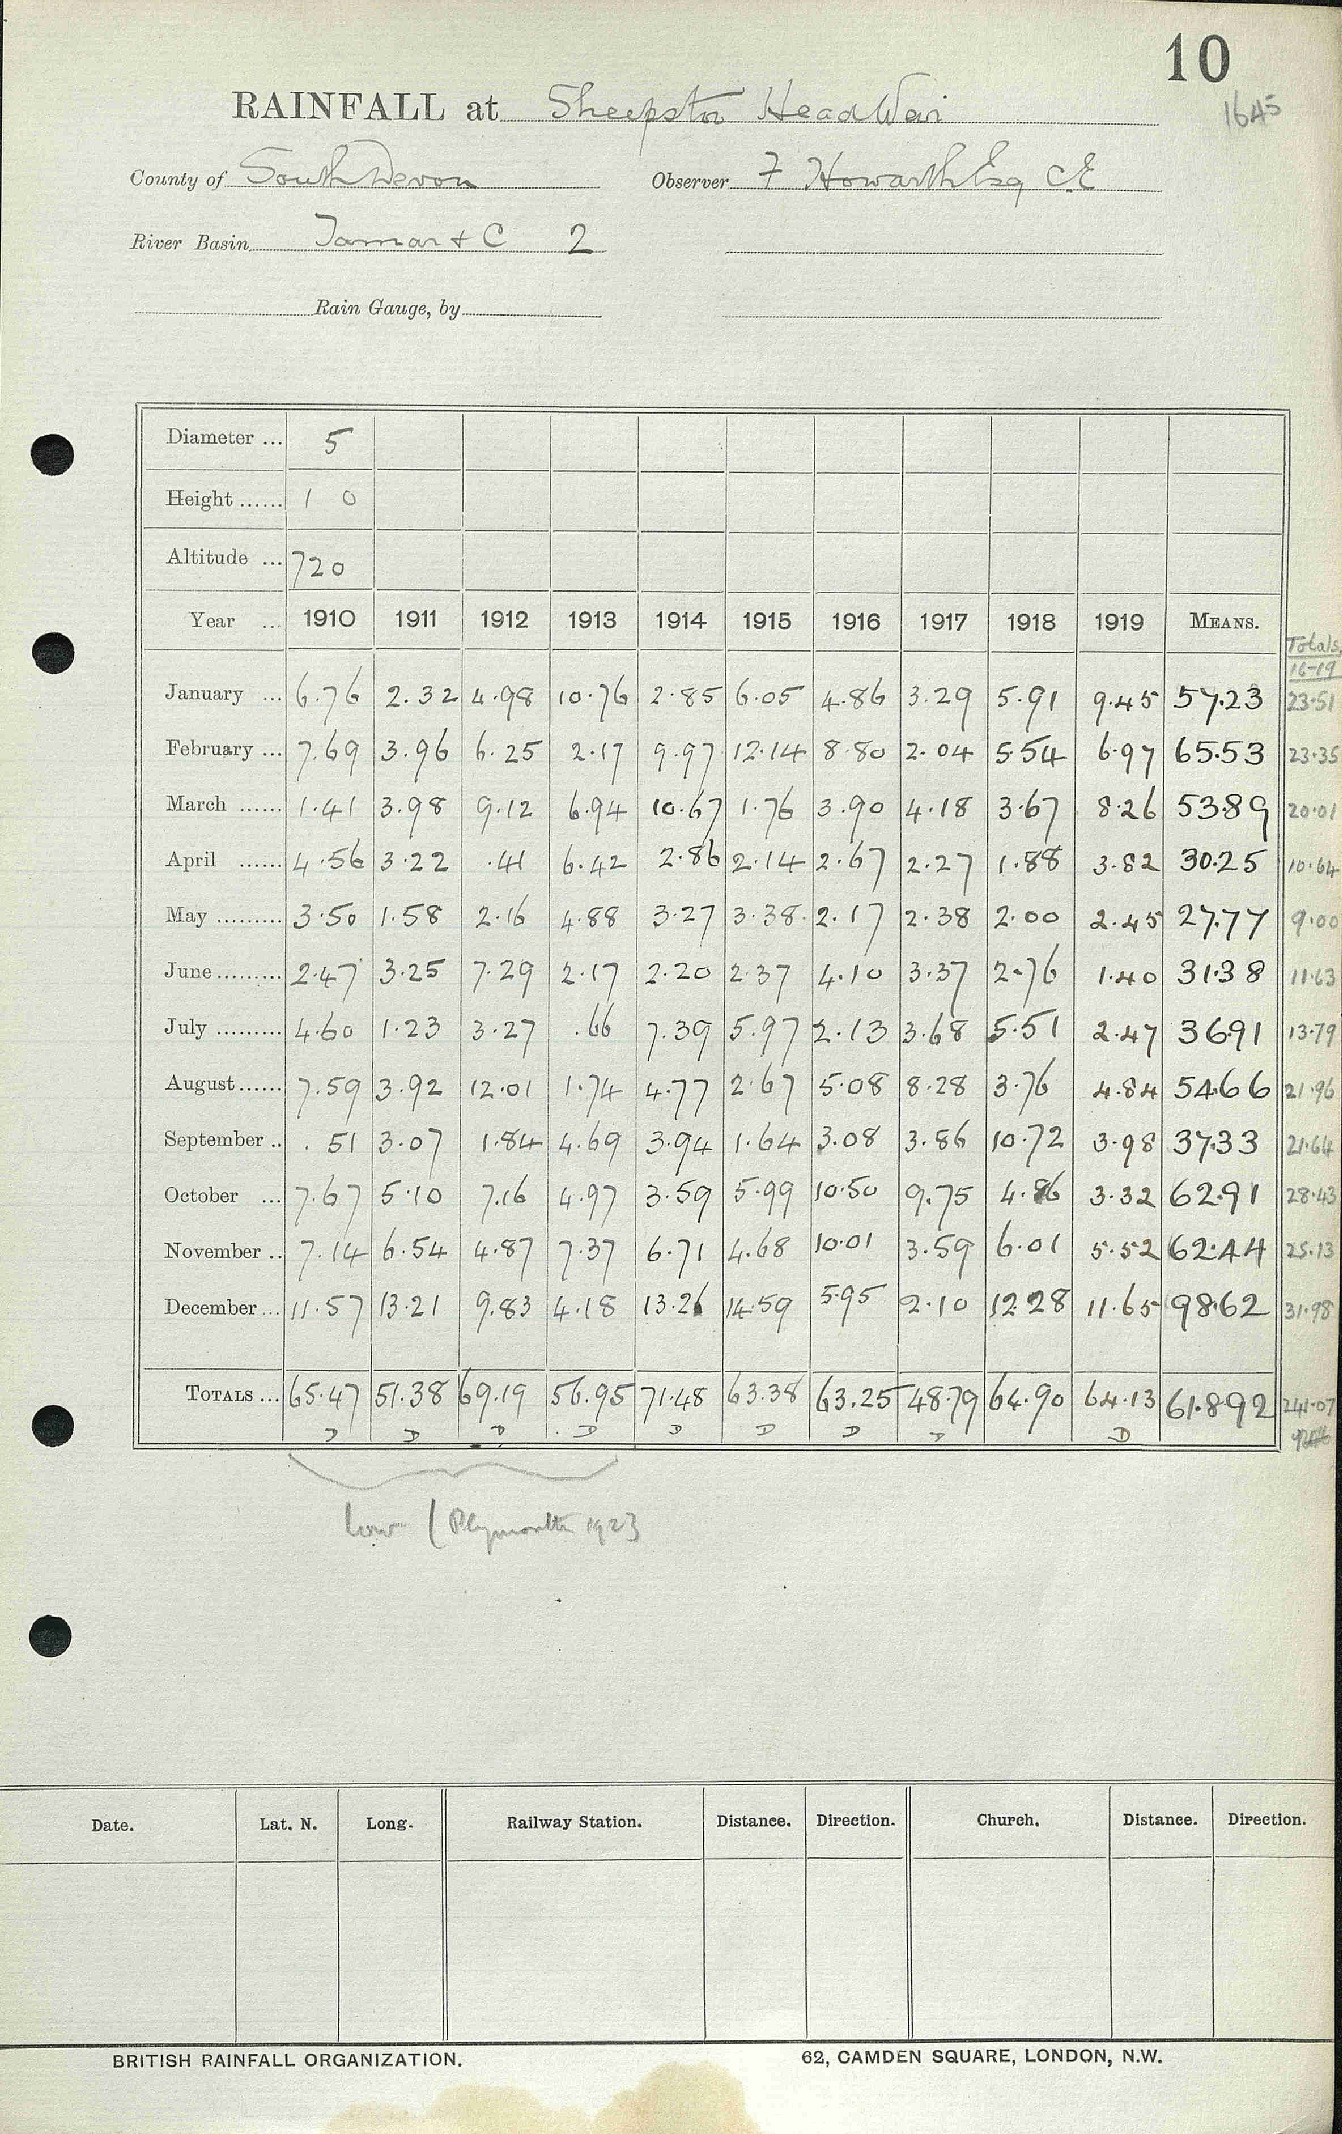 10
RAINFALL at Sheepstor Head Weir 1645
County of South Devon Observer F Howarth Esq C.E
River Basin Tamar & C 2
Rain Gauge, by
Diameter ... 5
Height ...... 1 0
Altitude ... 720
Year ... 1910 1911 1912 1913 1914 1915 1916 1917 1918 1919 MEANS. Totals 16-19
January ... 6.76 2.32 4.98 10.76 2.85 6.05 4.86 3.29 5.91 9.45 57.23 23.51
February ... 7.69 3.96 6.25 2.17 9.97 12.14 8.80 2.04 5.54 6.97 65.53 23.35
March ...... 1.41 3.98 9.12 6.94 10.67 1.76 3.90 4.18 3.67 8.26 53.89 20.01
April ...... 4.56 3.22 .41 6.42 2.86 2.14 2.67 2.27 1.88 3.82 30.25 10.64
May ......... 3.50 1.58 2.16 4.88 3.27 3.38 2.17 2.38 2.00 2.45 27.77 9.00
June ......... 2.47 3.25 7.29 2.17 2.20 2.37 4.10 3.37 2.76 1.40 31.38 11.63
July ......... 4.60 1.23 3.27 .66 7.39 5.97 2.13 3.68 5.51 2.47 36.91 13.79
August ...... 7.59 3.92 12.01 1.74 4.77 2.67 5.08 8.28 3.76 4.84 54.66 21.96
September .. .51 3.07 1.84 4.69 3.94 1.64 3.08 3.86 10.72 3.98 37.33 21.64
October ... 7.67 5.10 7.16 4.97 3.59 5.99 10.50 9.75 4.86 3.32 62.91 28.43
November .. 7.14 6.54 4.87 7.37 6.71 4.68 10.01 3.59 6.01 5.52 62.44 25.13
December ... 11.57 13.21 9.83 4.18 13.26 14.59 5.95 2.10 12.28 11.65 98.62 31.98
TOTALS ... 65.47 51.38 69.19 56.95 71.48 63.38 63.25 48.79 64.90 64.13 61.892 241.07
D D D D D D D D D
low (Plymouth 1923
Date. Lat. N. Long. Railway Station. Distance. Direction. Church. Distance. Direction.
BRITISH RAINFALL ORGANIZATION. 62, CAMDEN SQUARE, LONDON, N.W.